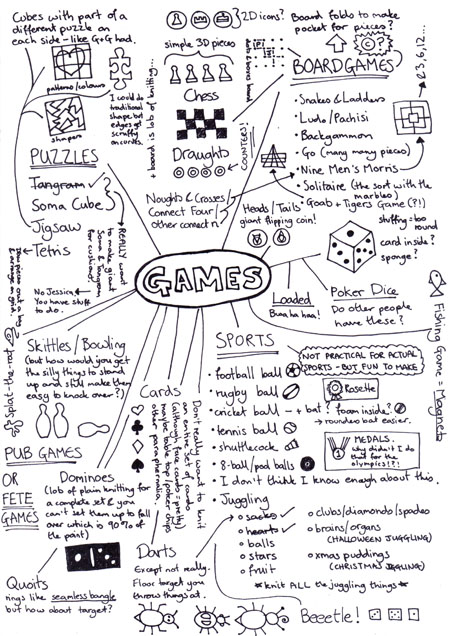 Cubes with part of a
different puzzle on
each side - like G+G had.
patterns/colours
shapes
I could do
traditional
shape, but
edges get
scruffy
on cards.
PUZZLES
Tangram
Soma Cube
Jigsaw
Tetris
REALLY want
to make giant
Soma & tangram
for cushions.
No Jessica
You have stuff
to do.
2D icons?
simple 3D pieces
Chess
+ board is lob of knitting...
Draughts
COUNTERS!
dots & boxes board
Board folds to make
pocket for pieces?
BOARDGAMES
3, 6, 12...
• Snakes & Ladders
• Ludo/Pachisi
• Backgammon
• Go (many many pieces)
• Nine Men's Morris
• Solitaire (the sort with the
marbles)
• Goats + Tigers Game (?!)
Noughts & Crosses/
Connect Four/
other connect n
Heads/Tails
giant flipping coin!
stuffing = too
round
card inside?
sponge?
GAMES
Loaded
Buha ha haa!
Poker Dice
Do other people
have these?
Fishing Game = Magnets
Skittles/Bowling
(but how would you get
the silly things to stand
up and still make them
easy to knock over?)
Splat-the-rat
PUB GAMES
OR
FETE
GAMES
Dominoes
(lob of plain knitting for
a complete set & you
can't set them up to fall
over which is 90% of
the point)
Quoits
rings like seamless bangle
but how about target?
Cards
Don't really want to knit
an entire set of cards
(although face cards = pretty)
maybe table top/poker chips
other paraphernalia.
Darts
Except not really.
Floor target you
throw things at.
SPORTS
NOT PRACTICAL FOR ACTUAL
SPORTS - BUT FUN TO MAKE
• football ball
• rugby ball
Rosette
• cricket ball - + bat? foam inside?
→ rounders bat easier.
• tennis ball
• shuttlecock
• 8-ball/pool balls
MEDALS.
why didn't I do
this for the
olympics?!?!
• I don't think I know enough about this.
• Juggling
sacks
hearts
balls
stars
fruit
clubs/diamonds/spades
brains/organs
(HALLOWEEN JUGGLING)
xmas puddings
(CHRISTMAS JUGGLING)
*knit ALL the juggling things*
Beeetle!